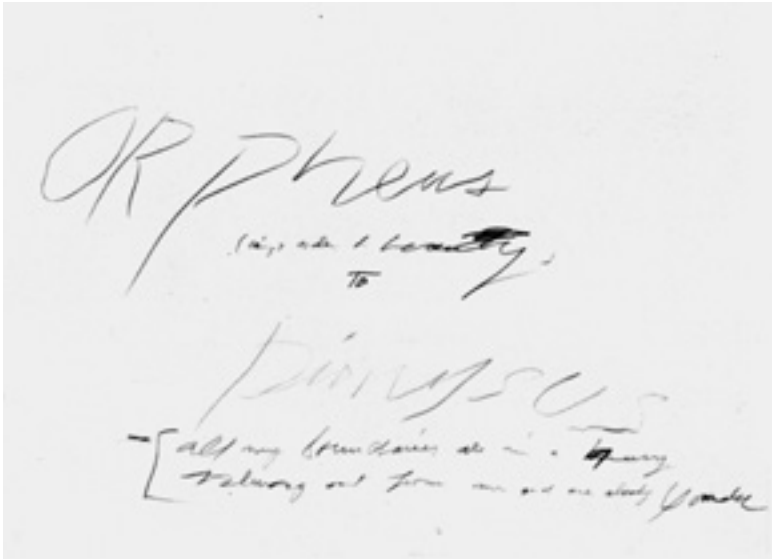 ORpheus
to
Dionysus
all my boundaries are in a hurry
out from me and are already yonder